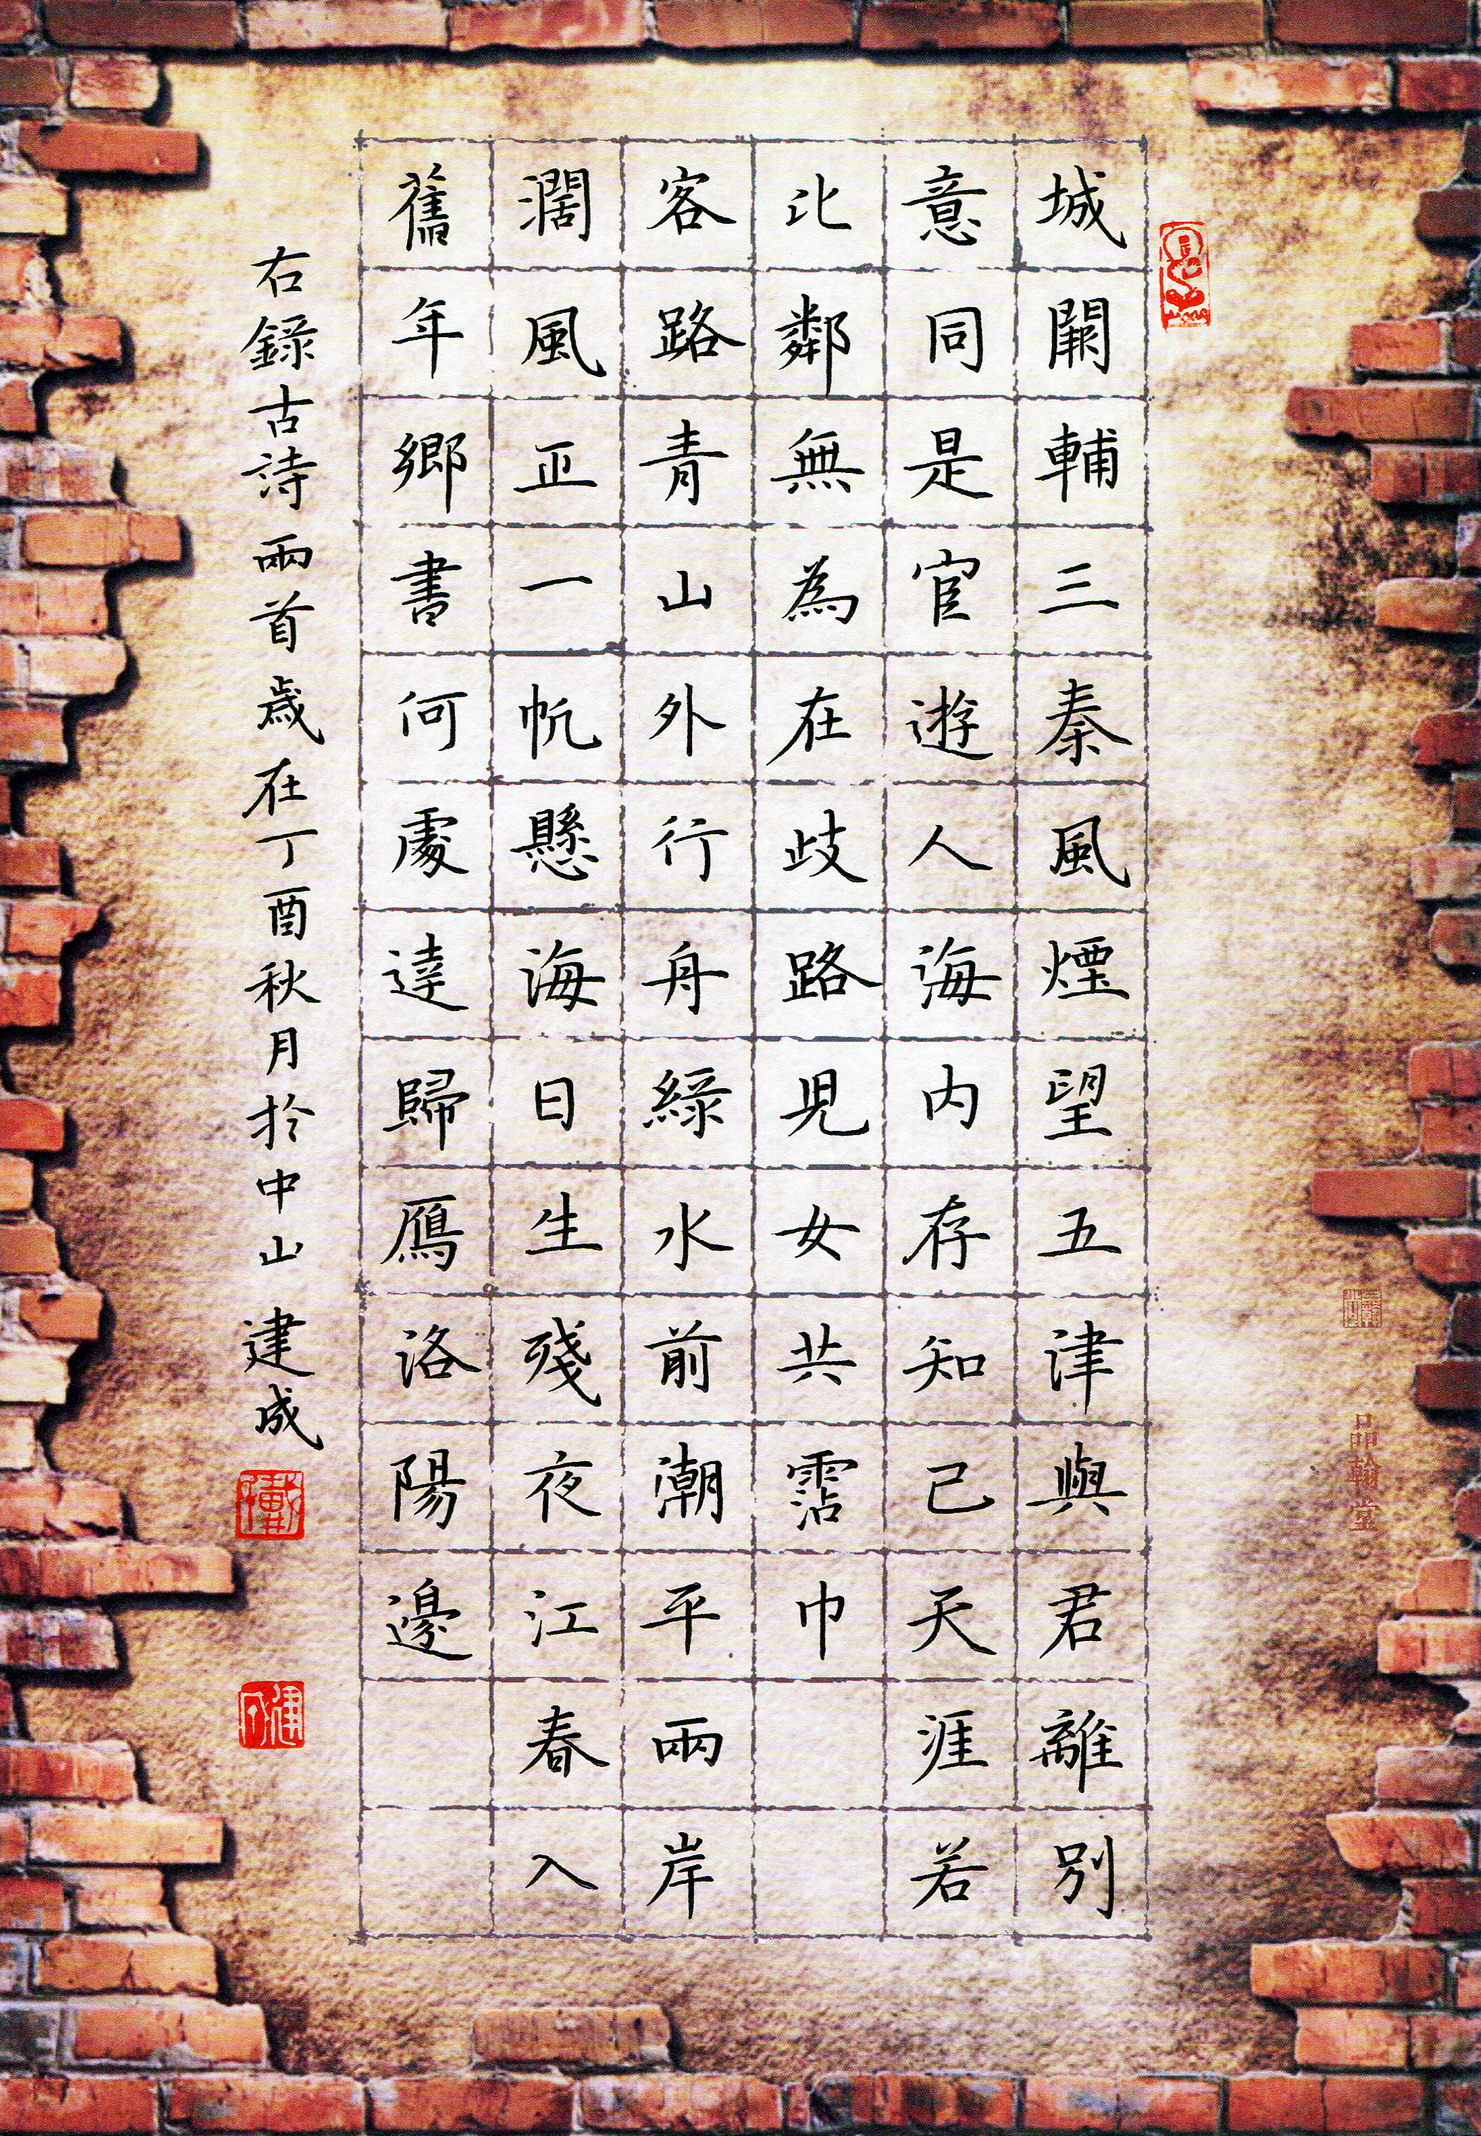 城闕輔三秦風煙望五津與君離別
意同是宦遊人海内存知己天涯若
比鄰無為在歧路兒女共霑巾
客路青山外行舟綠水前潮平兩岸
濶風正一帆懸海日生殘夜江春入
舊年鄉書何處達歸鴈洛陽邊
右錄古詩兩首歲在丁酉秋月於中山 建成
品翰堂